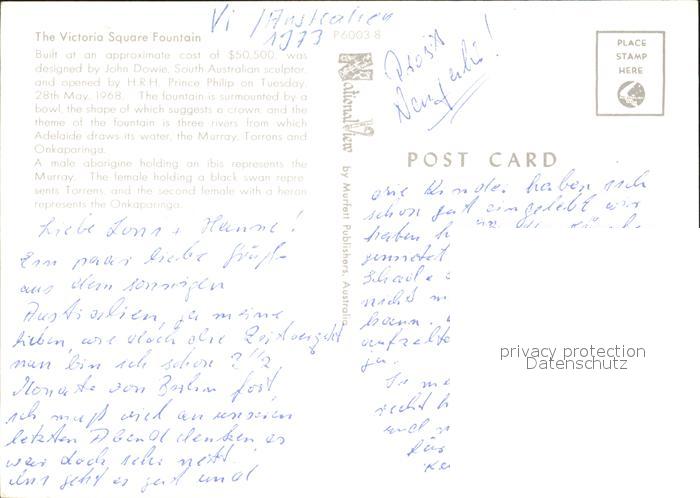 Vi / Australien
1973 P6003 8
The Victoria Square Fountain
Built at an approximate cost of $50,500, was
designed by John Dowie, South Australian sculptor,
and opened by H.R.H. Prince Philip on Tuesday,
28th May, 1968. The fountain is surmounted by a
bowl, the shape of which suggests a crown, and the
theme of the fountain is three rivers from which
Adelaide draws its water, the Murray, Torrens and
Onkaparinga.
A male aborigine holding an ibis represents the
Murray. The female holding a black swan repre-
sents Torrens, and the second female with a heron
represents the Onkaparinga.
Liebe u Hanne!
Ein paar liebe Grüße
aus dem sonnigen
Australien, ja meine
lieben, wie doch die Zeit vergeht
nun bin ich schon 2 1/2
Monate von Berlin fort,
ich muß viel an unseren
letzten Abend denken es
war doch sehr nett.
Uns geht es gut und
National View
by Murfett Publishers, Australia
Prosit
Neujahr!
PLACE
STAMP
HERE
POST CARD
die Kinder haben sich
schon gut eingelebt wir
haben
Schade
nicht
kann.
ja.
recht
und
für
privacy protection
Datenschutz